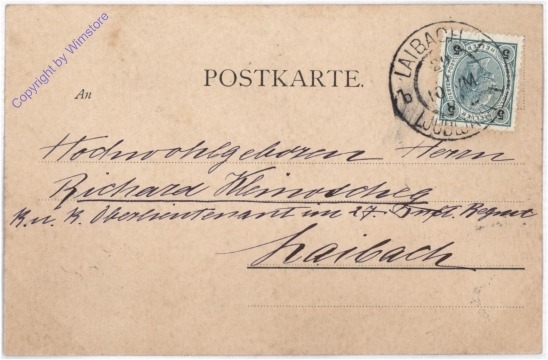 Copyright by Wimstore
LAIBACH
LJUBLJ
POSTKARTE.
An
Hochwohlgeboren Herrn
Richard Kleinoscheg
K. u. K. Oberlieutenant im 27. Inft. Regmt
Laibach